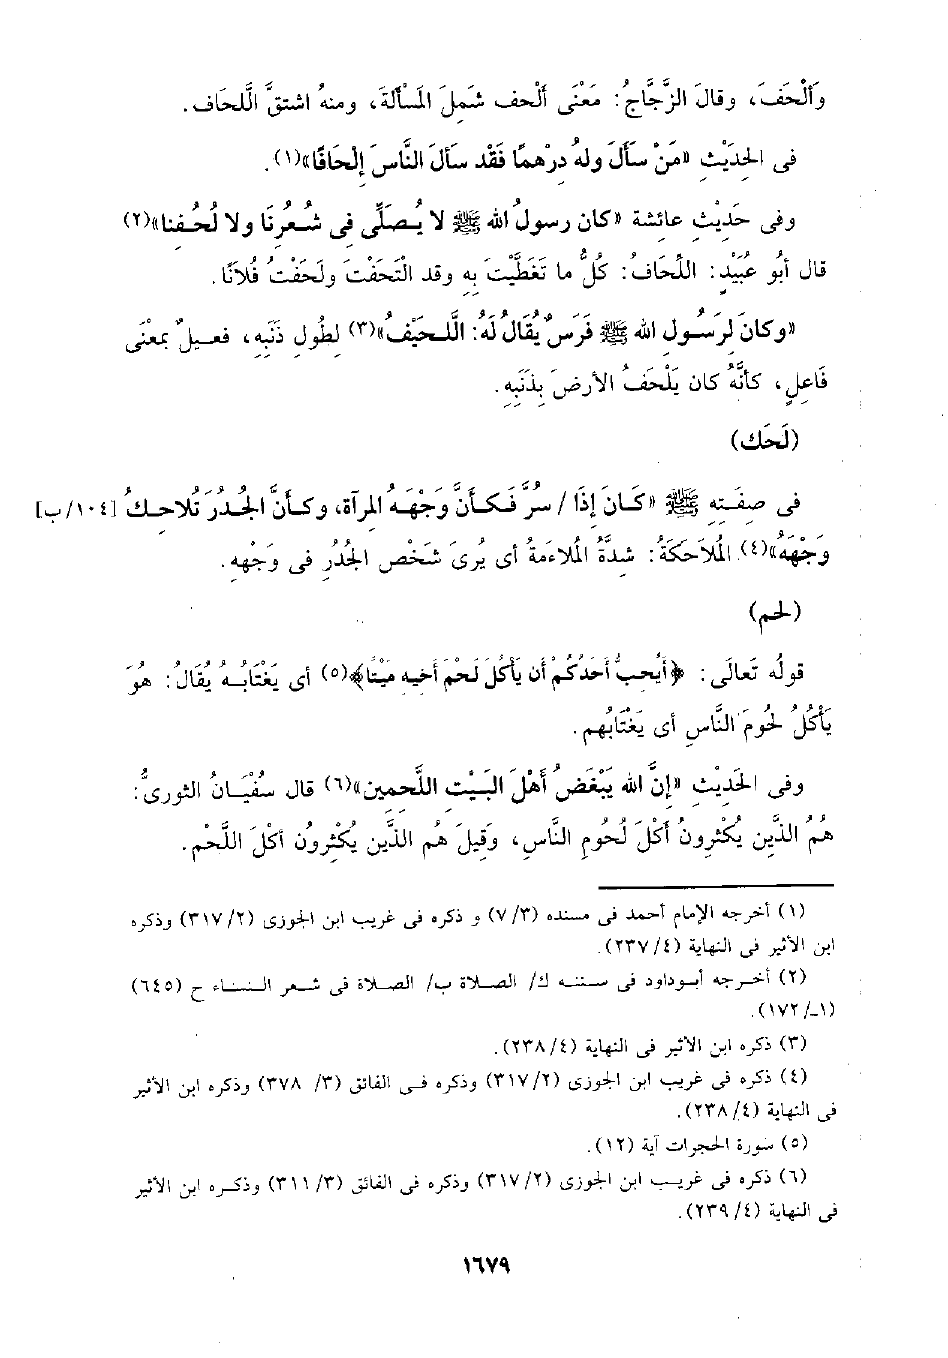 وَأَلْحَفَ، وقالَ الزَّجَّاجُ: مَعْنَى أَلْحف شَمَلَ المَسْأَلَةَ، ومنهُ اشتقَّ الَّلحَاف.
فى الحَدِيْثِ «مَنْ سَأَلَ ولهُ درْهمًا فَقْد سَألَ النَّاسَ إلْحَافًا»(١).
وفى حَدِيْثِ عائشة «كان رسولُ الله ﷺ لا يُصَلِّى فى شُعُرِنَا ولا لُحُفنا»(٢)
قال أبُو عُبَيْدٍ: اللِّحَافُ: كُلُّ ما تَغَطَّيْتَ بِهِ وقد الْتَحَفْتَ ولَحَفْتُ فُلاَنًا.
«وكانَ لرَسُول الله ﷺ فَرَسٌ يُقَالُ لَهُ: الَّلحَيْفُ»(٣) لِطُولِ ذَنَبِهِ، فعيلٌ بمعْنَى
فَاعِلٍ، كأنَّهُ كان يَلْحَفُ الأرضَ بِذَنَبِهِ.
(لَحَك)
فى صِفَتِهِ ﷺ «كَانَ إذَا / سُرَّ فَكأنَّ وَجْهَهُ المرآة، وكأنَّ الجُدُرَ تُلاحِكُ [١٠٤/ب]
وَجْهَهُ»(٤) المُلاَحَكَةُ: شدَّةُ المُلاءَمةُ أى يُرىَ شَخْص الجُدُرِ فى وَجْههِ.
(لحم)
قولُه تَعالَى: ﴿أيُحبُّ أحَدُكُمْ أن يأكُلَ لَحْمَ أخيه مَيْتًا﴾(٥) أى يَغْتَابُهُ يُقَالُ: هوَ
يَأْكُلُ لحُومَ النَّاسِ أى يَغْتَابُهم.
وفى الحَدِيْثِ «إنَّ الله يَبْغَضُ أَهْلَ البَيْت اللَّحمين»(٦) قال سُفْيَانُ الثورىُّ:
هُمُ الذَّين يُكْثِرونُ أَكْلَ لُحُومِ الناسِ، وَقيلَ هُم الذَّين يُكْثِروُن أكْلَ اللَّحْم.
(١) أخرجه الإمام أحمد فى مسنده (٧/٣) و ذكره فى غريب ابن الجوزى (٣١٧/٢) وذكره
ابن الأثير فى النهاية (٢٣٧/٤).
(٢) أخرجه أبوداود فى سننه ك/ الصلاة ب/ الصلاة فى شعر النساء ح (٦٤٥)
(١ـ/١٧٢).
(٣) ذكره ابن الأثير فى النهاية (٢٣٨/٤).
(٤) ذكره فى غريب ابن الجوزى (٣١٧/٢) وذكره فى الفائق (٣/ ٣٧٨) وذكره ابن الأثير
فى النهاية (٢٣٨/٤).
(٥) سورة الحجرات آية (١٢).
(٦) ذكره فى غريب ابن الجوزى (٣١٧/٢) وذكره فى الفائق (٣١١/٣) وذكره ابن الأثير
فى النهاية (٢٣٩/٤).
١٦٧٩